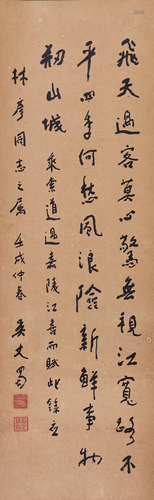 飛天過客莫心驚無視江寬路不
平四季何愁風浪險新鮮事物
山城 乘索道過嘉陵江喜而賦此錄应
林彥同志之屬 壬戌仲春 吳丈蜀